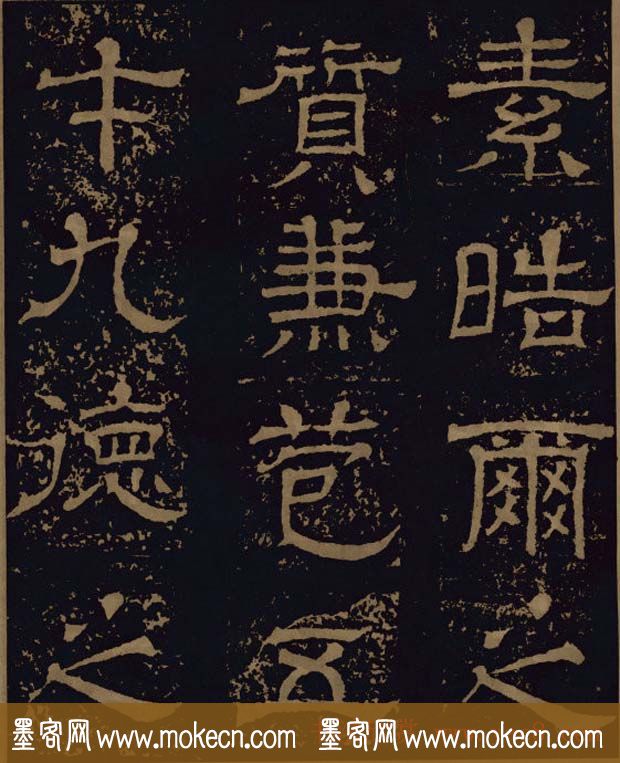 素晧爾之
質兼苞五
才九德之
墨客网 www.mokecn.com 墨客网 www.mokecn.com